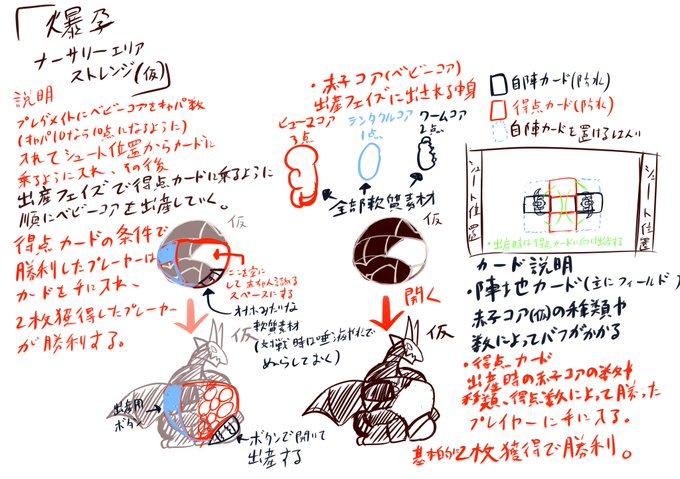 「爆孕
ナーサリーエリア
ストレンジ(仮)」
説明
プレグメイトにベビーコアをキャパ数
(キャパ10なら10点になるように)
入れてシュート位置からカードに
乗るように入れ、その後
出産フェイズで得点カードに乗るように
順にベビーコアを出産していく。
得点カードの条件で
勝利したプレーヤーは
カードを手に入れ、
2枚獲得したプレーヤー
が勝利する。
・赤子コア(ベビーコア)
出産フェイズに出される中身
ヒューマコア
3点
テンタクルコア
1点
ワームコア
2点
全部軟質素材
仮
仮
ここを空に
して
スペースにする
軟質素材
ぬらしておく)
開く
仮
仮
出産用
ボタン
ボタンで開いて
出産する
自陣カード(防水)
得点カード(防水)
自陣カードを置けるはんい
シュート位置
シュート位置
・出産時は得点カードに向け出産する
カード説明
・陣地カード(主にフィールド)
赤子コア(仮)の種類や
数によってバフがかかる
・得点カード
出産時の赤子コアの数や
種類、得点数によって勝った
プレイヤーに手に入る。
基本的に2枚獲得で勝利。